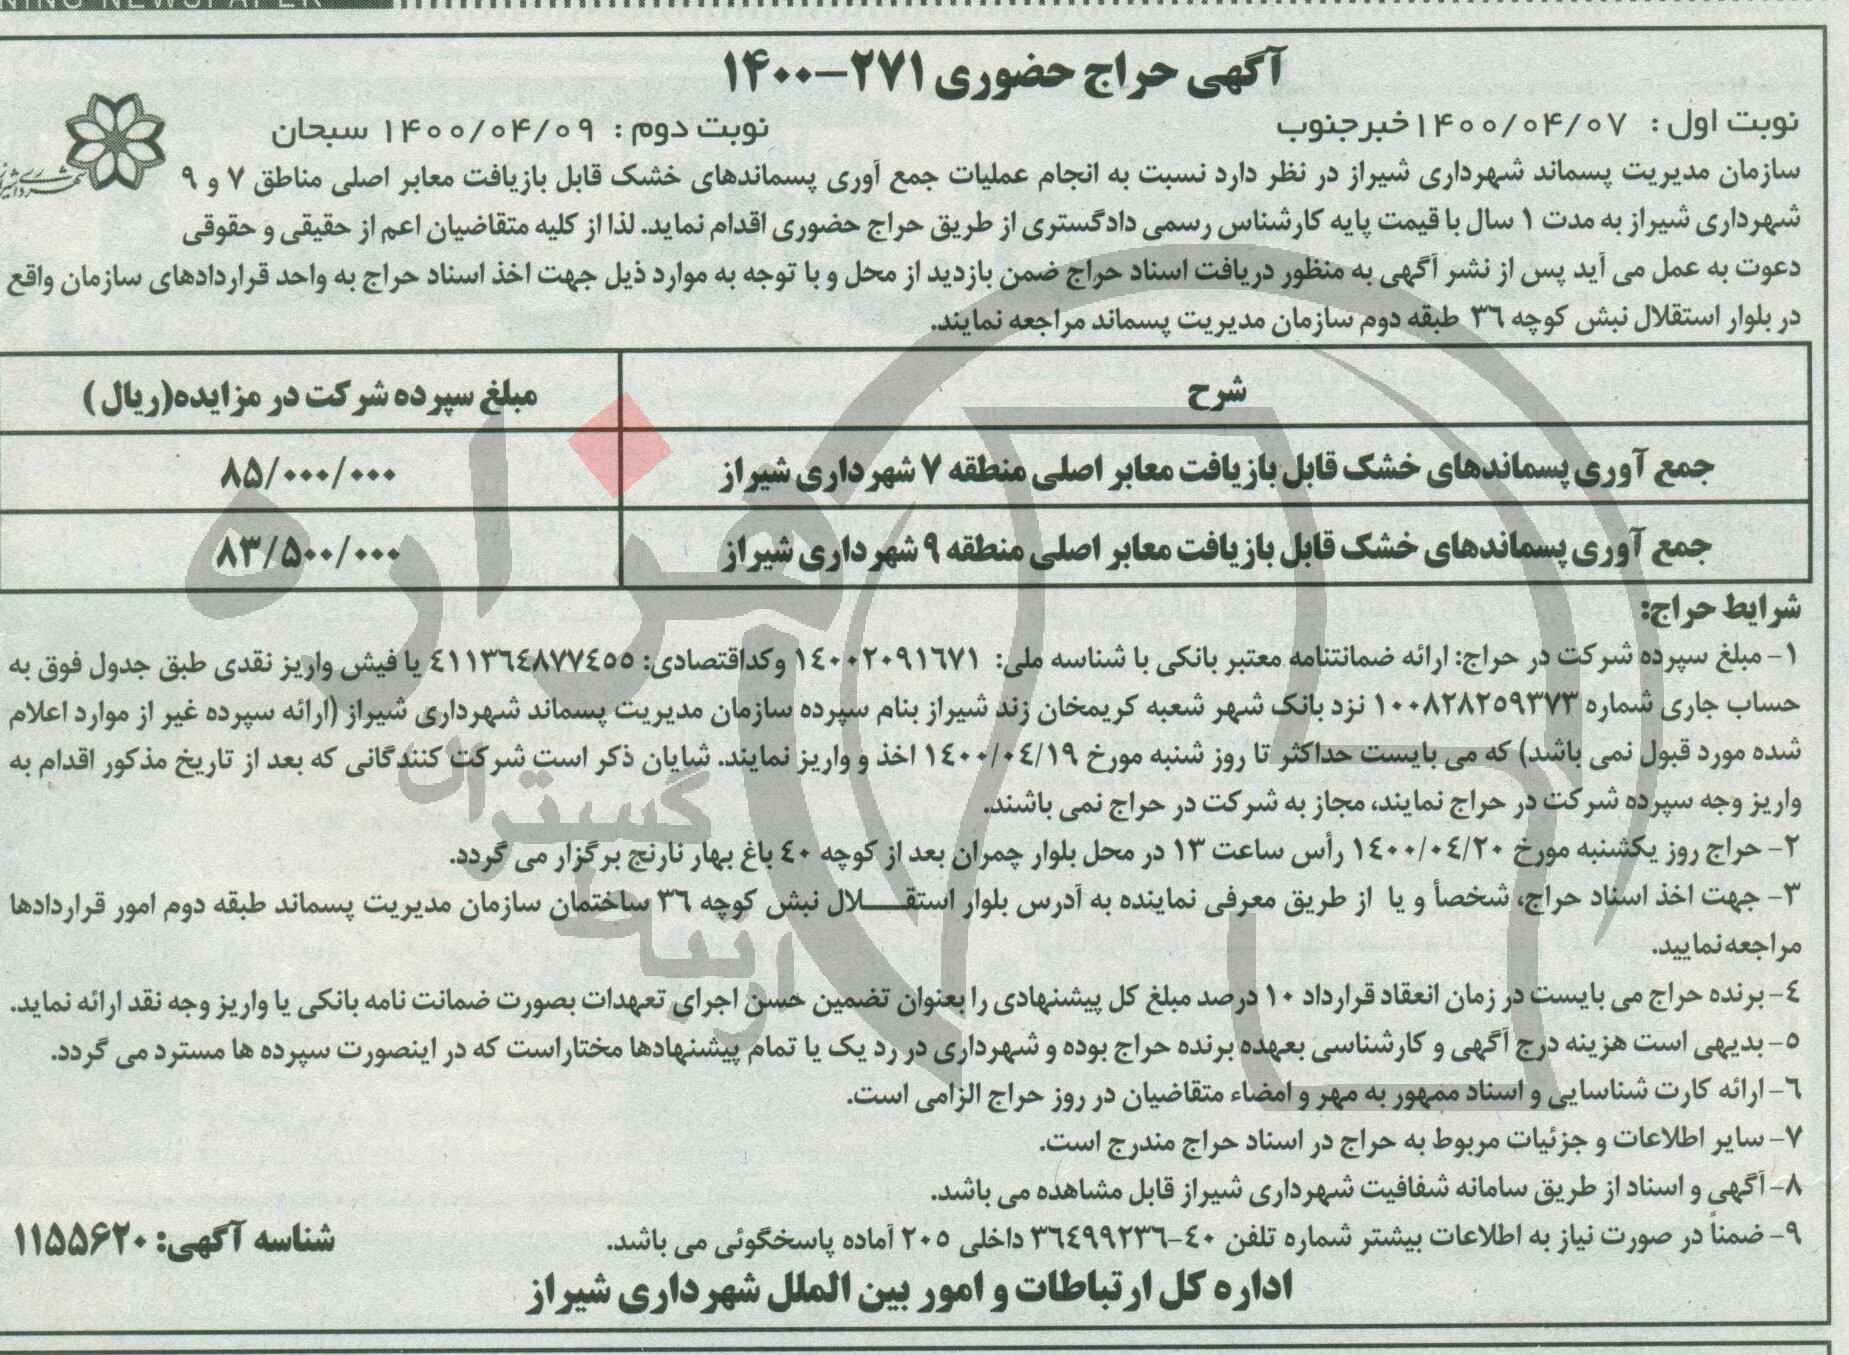 NING NEWSPAPER
آگهی حراج حضوری ۲۷۱-۱۴۰۰
نوبت اول : ۱۴۰۰/۰۴/۰۷ خبرجنوب
نوبت دوم : ۱۴۰۰/۰۴/۰۹ سبحان
سازمان مدیریت پسماند شهرداری شیراز در نظر دارد نسبت به انجام عملیات جمع آوری پسماندهای خشک قابل بازیافت معابر اصلی مناطق ۷ و ۹
شهرداری شیراز به مدت ۱ سال با قیمت پایه کارشناس رسمی دادگستری از طریق حراج حضوری اقدام نماید. لذا از کلیه متقاضیان اعم از حقیقی و حقوقی
دعوت به عمل می آید پس از نشر آگهی به منظور دریافت اسناد حراج ضمن بازدید از محل و با توجه به موارد ذیل جهت اخذ اسناد حراج به واحد قراردادهای سازمان واقع
در بلوار استقلال نبش کوچه ۳٦ طبقه دوم سازمان مدیریت پسماند مراجعه نمایند.
شرح
مبلغ سپرده شرکت در مزایده(ریال)
جمع آوری پسماندهای خشک قابل بازیافت معابر اصلی منطقه ۷ شهرداری شیراز
۸۵/۰۰۰/۰۰۰
جمع آوری پسماندهای خشک قابل بازیافت معابر اصلی منطقه ۹ شهرداری شیراز
۸۳/۵۰۰/۰۰۰
شرایط حراج:
۱- مبلغ سپرده شرکت در حراج: ارائه ضمانتنامه معتبر بانکی با شناسه ملی: ۱٤۰۰۲۰۹۱٦۷۱ وکداقتصادی: ٤۱۱۳٦٤۸۷۷٤٥٥ یا فیش واریز نقدی طبق جدول فوق به
حساب جاری شماره ۱۰۰۸۲۸۲٥۹۳۷۳ نزد بانک شهر شعبه کریمخان زند شیراز بنام سپرده سازمان مدیریت پسماند شهرداری شیراز (ارائه سپرده غیر از موارد اعلام
شده مورد قبول نمی باشد) که می بایست حداکثر تا روز شنبه مورخ ۱٤۰۰/۰٤/۱۹ اخذ و واریز نمایند. شایان ذکر است شرکت کنندگانی که بعد از تاریخ مذکور اقدام به
واریز وجه سپرده شرکت در حراج نمایند، مجاز به شرکت در حراج نمی باشند.
۲- حراج روز یکشنبه مورخ ۱٤۰۰/۰٤/۲۰ رأس ساعت ۱۳ در محل بلوار چمران بعد از کوچه ٤۰ باغ بهار نارنج برگزار می گردد.
۳- جهت اخذ اسناد حراج، شخصاً و یا از طریق معرفی نماینده به آدرس بلوار استقـــلال نبش کوچه ۳٦ ساختمان سازمان مدیریت پسماند طبقه دوم امور قراردادها
مراجعه نمایید.
٤- برنده حراج می بایست در زمان انعقاد قرارداد ۱۰ درصد مبلغ کل پیشنهادی را بعنوان تضمین حسن اجرای تعهدات بصورت ضمانت نامه بانکی یا واریز وجه نقد ارائه نماید.
٥- بدیهی است هزینه درج آگهی و کارشناسی بعهده برنده حراج بوده و شهرداری در رد یک یا تمام پیشنهادها مختاراست که در اینصورت سپرده ها مسترد می گردد.
٦- ارائه کارت شناسایی و اسناد ممهور به مهر و امضاء متقاضیان در روز حراج الزامی است.
۷- سایر اطلاعات و جزئیات مربوط به حراج در اسناد حراج مندرج است.
۸- آگهی و اسناد از طریق سامانه شفافیت شهرداری شیراز قابل مشاهده می باشد.
۹- ضمناً در صورت نیاز به اطلاعات بیشتر شماره تلفن ٤۰-۳٦٤۹۹۲۳٦ داخلی ۲۰٥ آماده پاسخگوئی می باشد.
شناسه آگهی: ۱۱۵۵۶۲۰
اداره کل ارتباطات و امور بین الملل شهرداری شیراز
هزاره
گستران
ارتباط